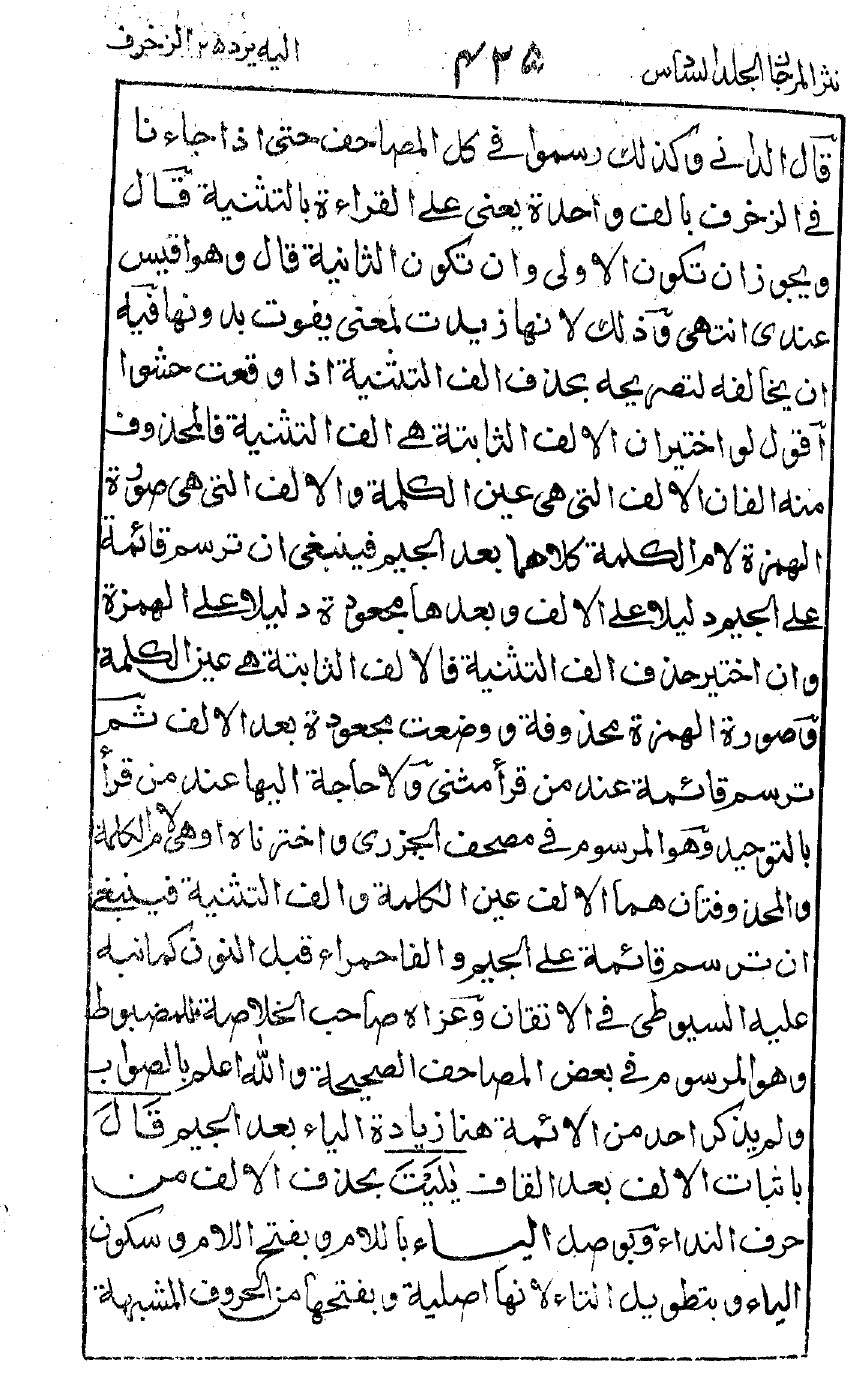 نثر المرجان الجلد السادس ٤٢٥ اليه يرد ٢٥ الزخرف
قال الداني وكذلك رسموا في كل المصاحف حتى اذا جاءنا
في الزخرف بالف واحدة يعني على القراءة بالتثنية قال
ويجوز ان تكون الاولى وان تكون الثانية قال وهو اقيس
عندى انتهى وذلك لانها زيدت لمعنى يفوت بدونها فيه
ان يخالفه لتصريحه بحذف الف التثنية اذا وقعت حشوا
اقول لو اختير ان الالف الثابتة هي الف التثنية فالمحذوف
منه الفان الالف التى هى عين الكلمة والالف التى هى صورة
الهمزة لام الكلمة كلاهما بعد الجيم فينبغى ان ترسم قائمة
على الجيم دليلا على الالف وبعدها مجعودة دليلا على الهمزة
وان اختير حذف الف التثنية فالالف الثابتة هي عين الكلمة
وصورة الهمزة محذوفة ووضعت مجعودة بعد الالف ثم
ترسم قائمة عند من قرأ مثنى ولا حاجة اليها عند من قرأ
بالتوحيد وهو المرسوم في مصحف الجزرى واخترناه اوهى لام الكلمة
والمحذوفتان هما الالف عين الكلمة والف التثنية فينبغي
ان ترسم قائمة على الجيم والفا حمراء قبل النون كما نبه
عليه السيوطى في الاتقان وعزاه صاحب الخلاصة للمضبوط
وهو المرسوم في بعض المصاحف الصحيحة والله اعلم بالصواب
ولم يذكر احد من الائمة هنا زيادة الياء بعد الجيم قَالَ
باثبات الالف بعد القاف يٰلَيْتَ بحذف الالف من
حرف النداء وبوصل الياء باللام وبفتح اللام وسكون
الياء وبتطويل التاء لانها اصلية وبفتحها من الحروف المشبهة